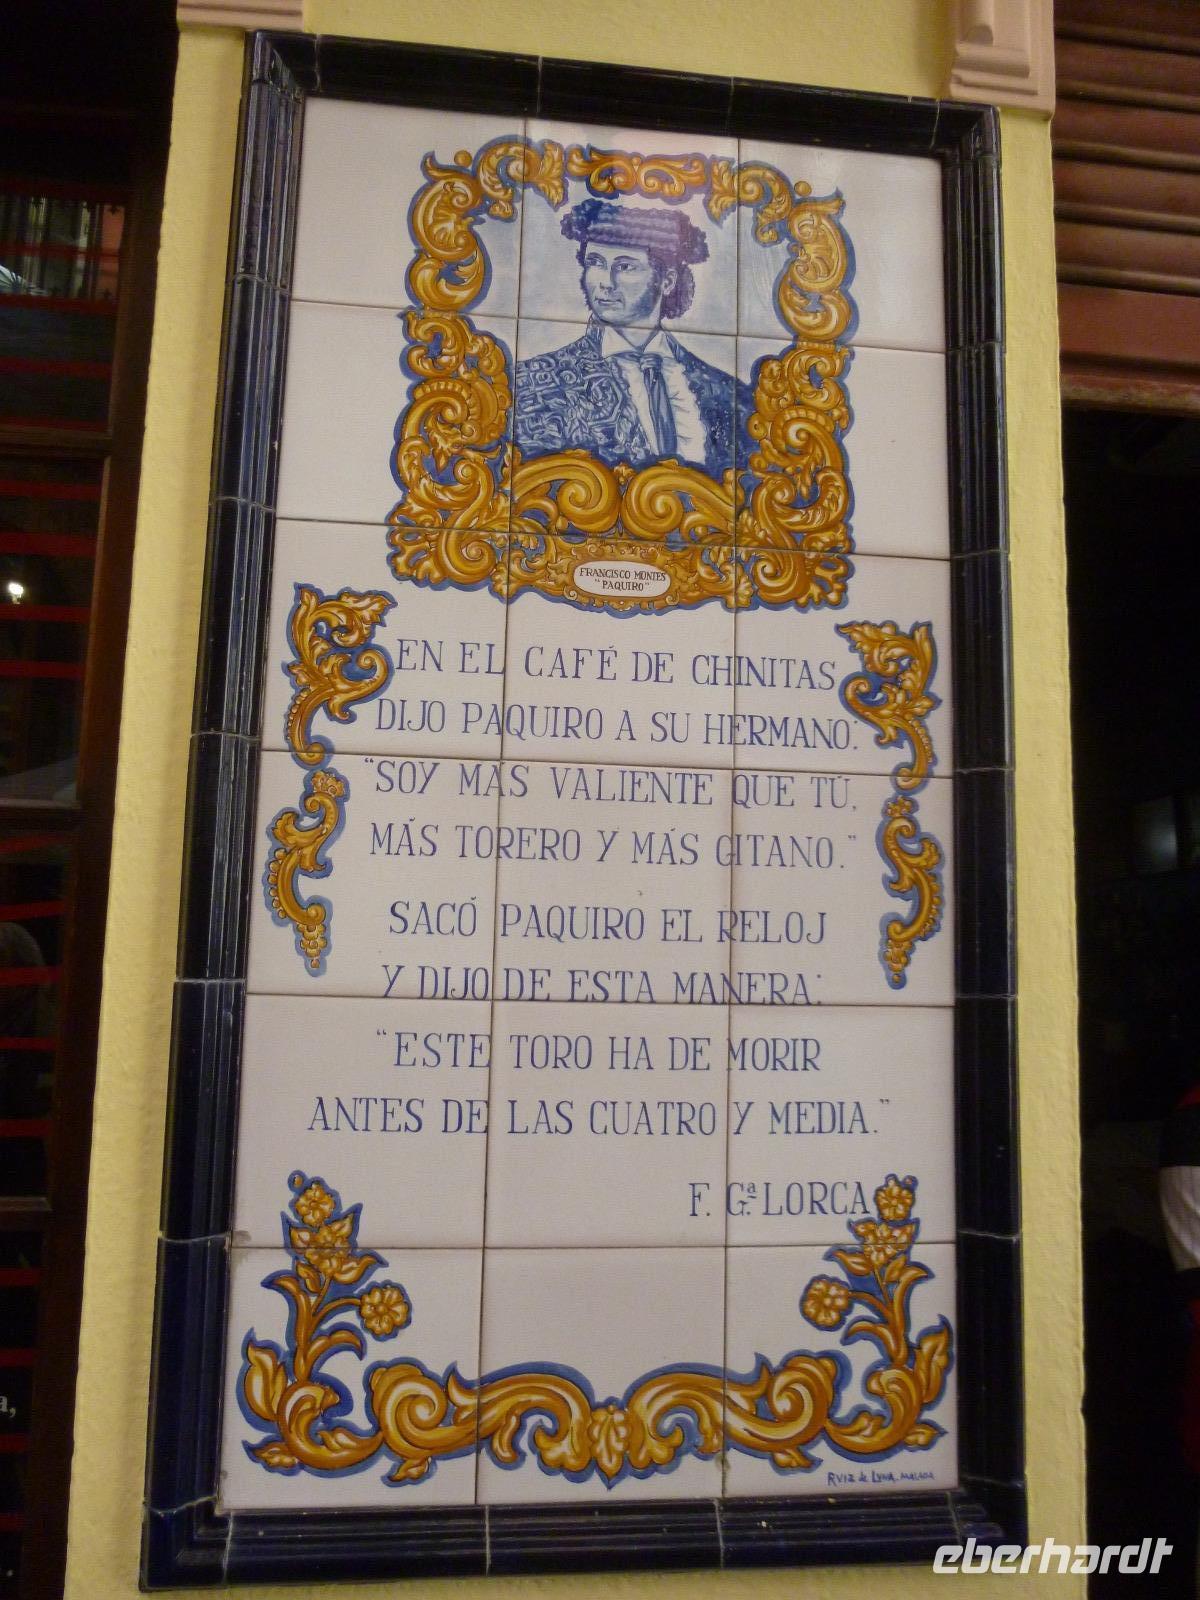 FRANCISCO MONTES
"PAQUIRO"
EN EL CAFÉ DE CHINITAS
DIJO PAQUIRO A SU HERMANO:
"SOY MÁS VALIENTE QUE TÚ,
MÁS TORERO Y MÁS GITANO."
SACÓ PAQUIRO EL RELOJ
Y DIJO DE ESTA MANERA:
"ESTE TORO HA DE MORIR
ANTES DE LAS CUATRO Y MEDIA."
F. Gª. LORCA
RUIZ de LUNA. MALAGA
a,
eberhardt